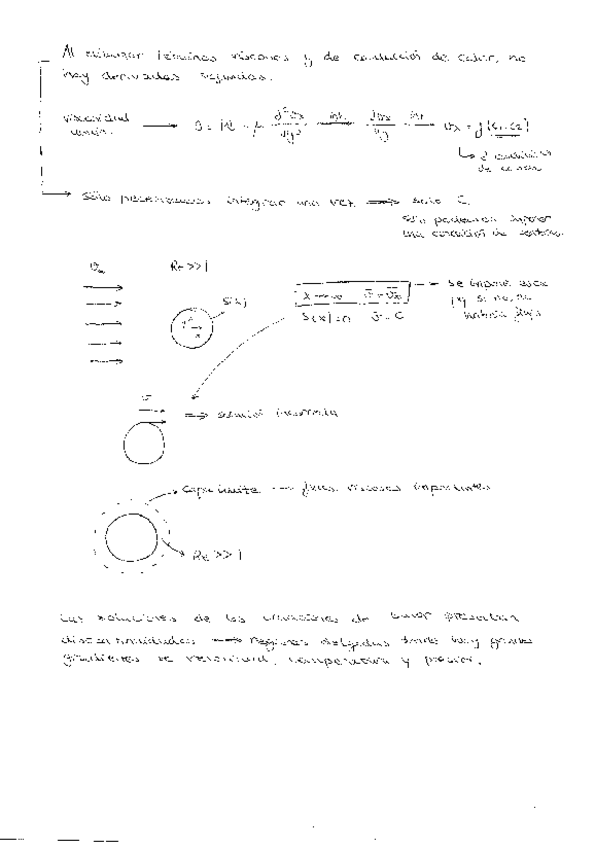 Al eliminar términos viscosos y de conducción de calor, no
hay derivadas segundas.
viscosidad
→ 0 = Pl + μ d²vx/dy² → dvx/dy → vx = f(C1, C2)
2 condiciones
de contorno
Sólo necesitamos integrar una vez ⟹ solo C.
Sólo podemos imponer
una condición de contorno.
v∞ Re >> 1
S(x)
x → ∞ v̄ = v̄∞ → se impone esta
S(x) = 0 v̄ = 0 pq si no, no
habría flujo
v
⟹ solución incorrecta
Capa límite → fuerzas viscosas importantes
Re >> 1
Las soluciones de las ecuaciones de Euler presentan
discontinuidades → regiones delgadas donde hay grandes
gradientes de velocidad, temperatura y presión.